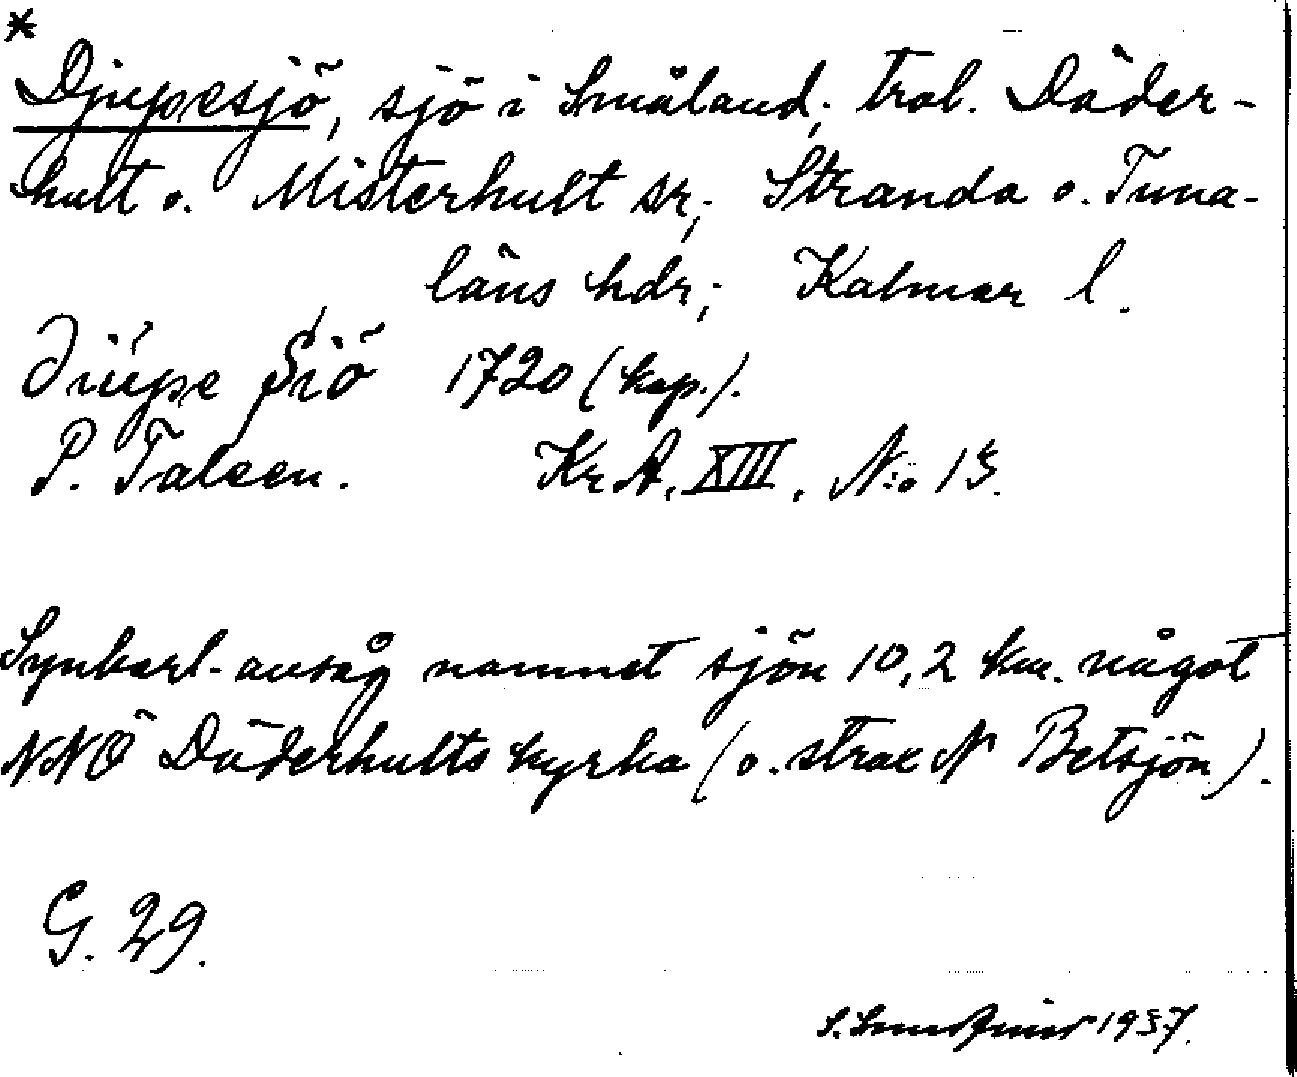 *
Djupesjö, sjö i Småland; trol. Döder-
hult o. Misterhult sr; Stranda o. Tuna-
läns hdr; Kalmar l.
Diupe Siö 1720 (kop.).
P. Taleen. Kr A, XIII, N:o 15.
Synbarl. avsåg namnet sjön 10,2 km. något
NNÖ Döderhults kyrka (o. strax N Betsjön).
G. 29.
1937.